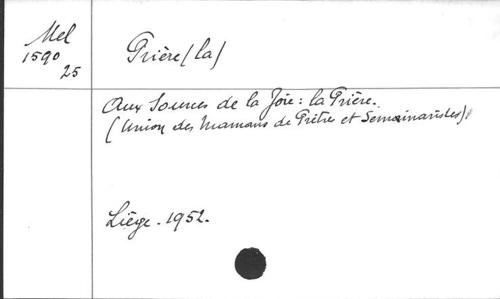 Mel
1590
25
Prière (la)
Aux Sources de la Joie : la Prière.
(Union des Mamans de Prêtres et Séminaristes)
Liège. 1952.